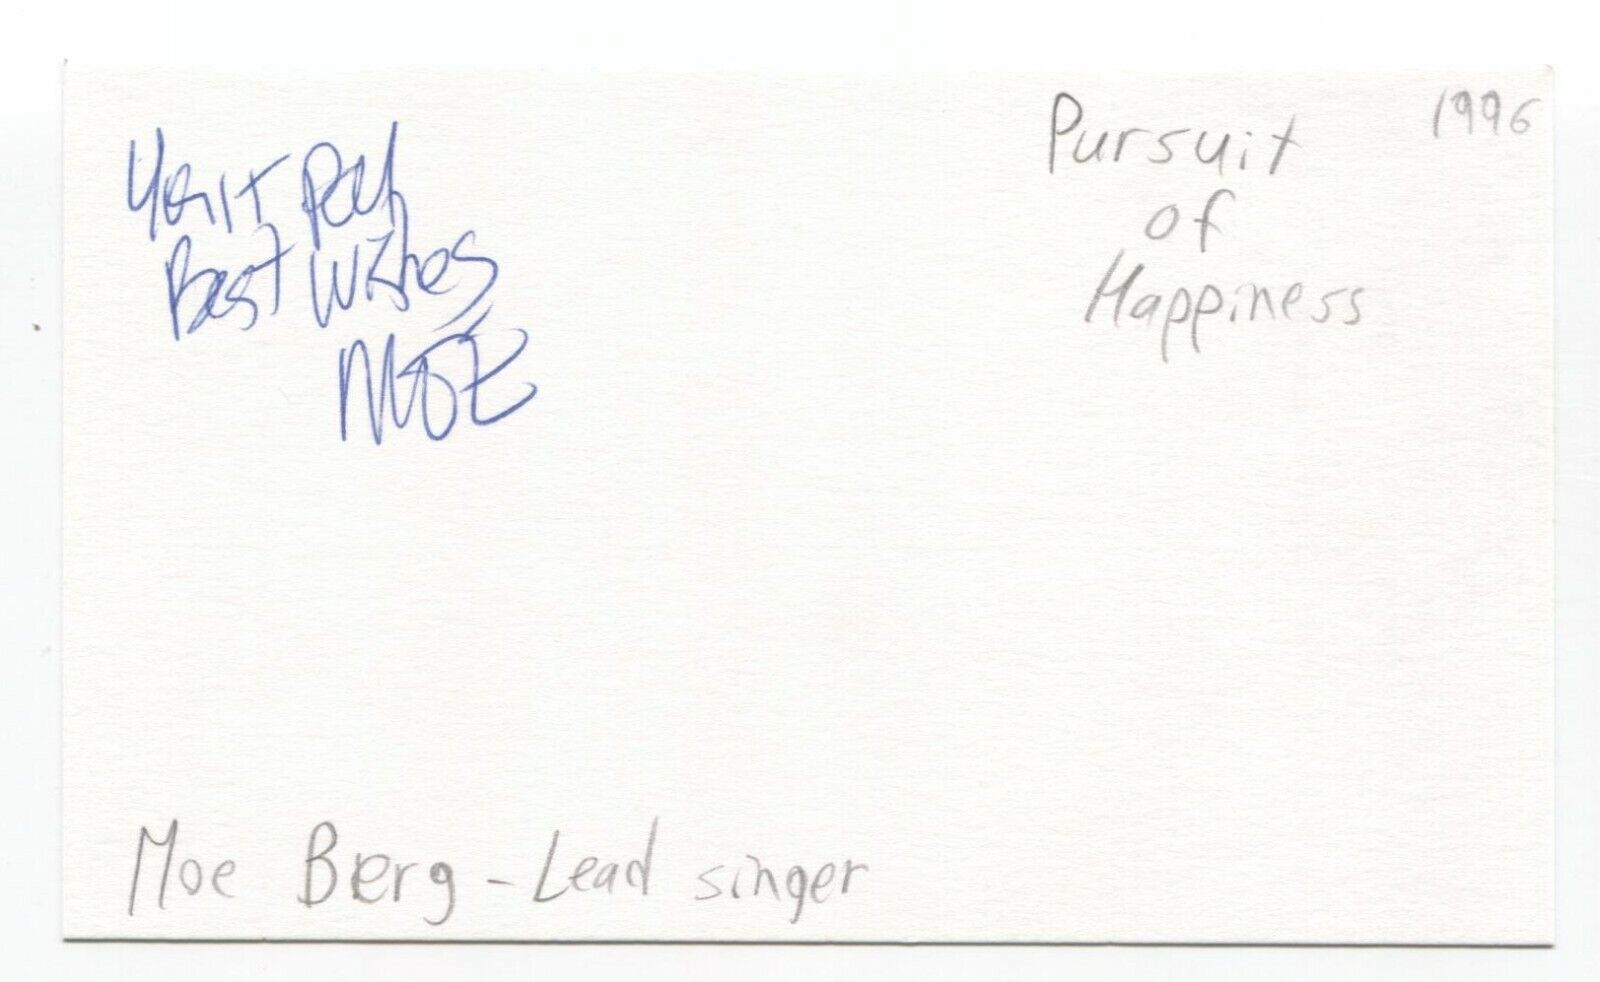 Best Wishes
MOE
Pursuit
of
Happiness
1996
Moe Berg - Lead singer